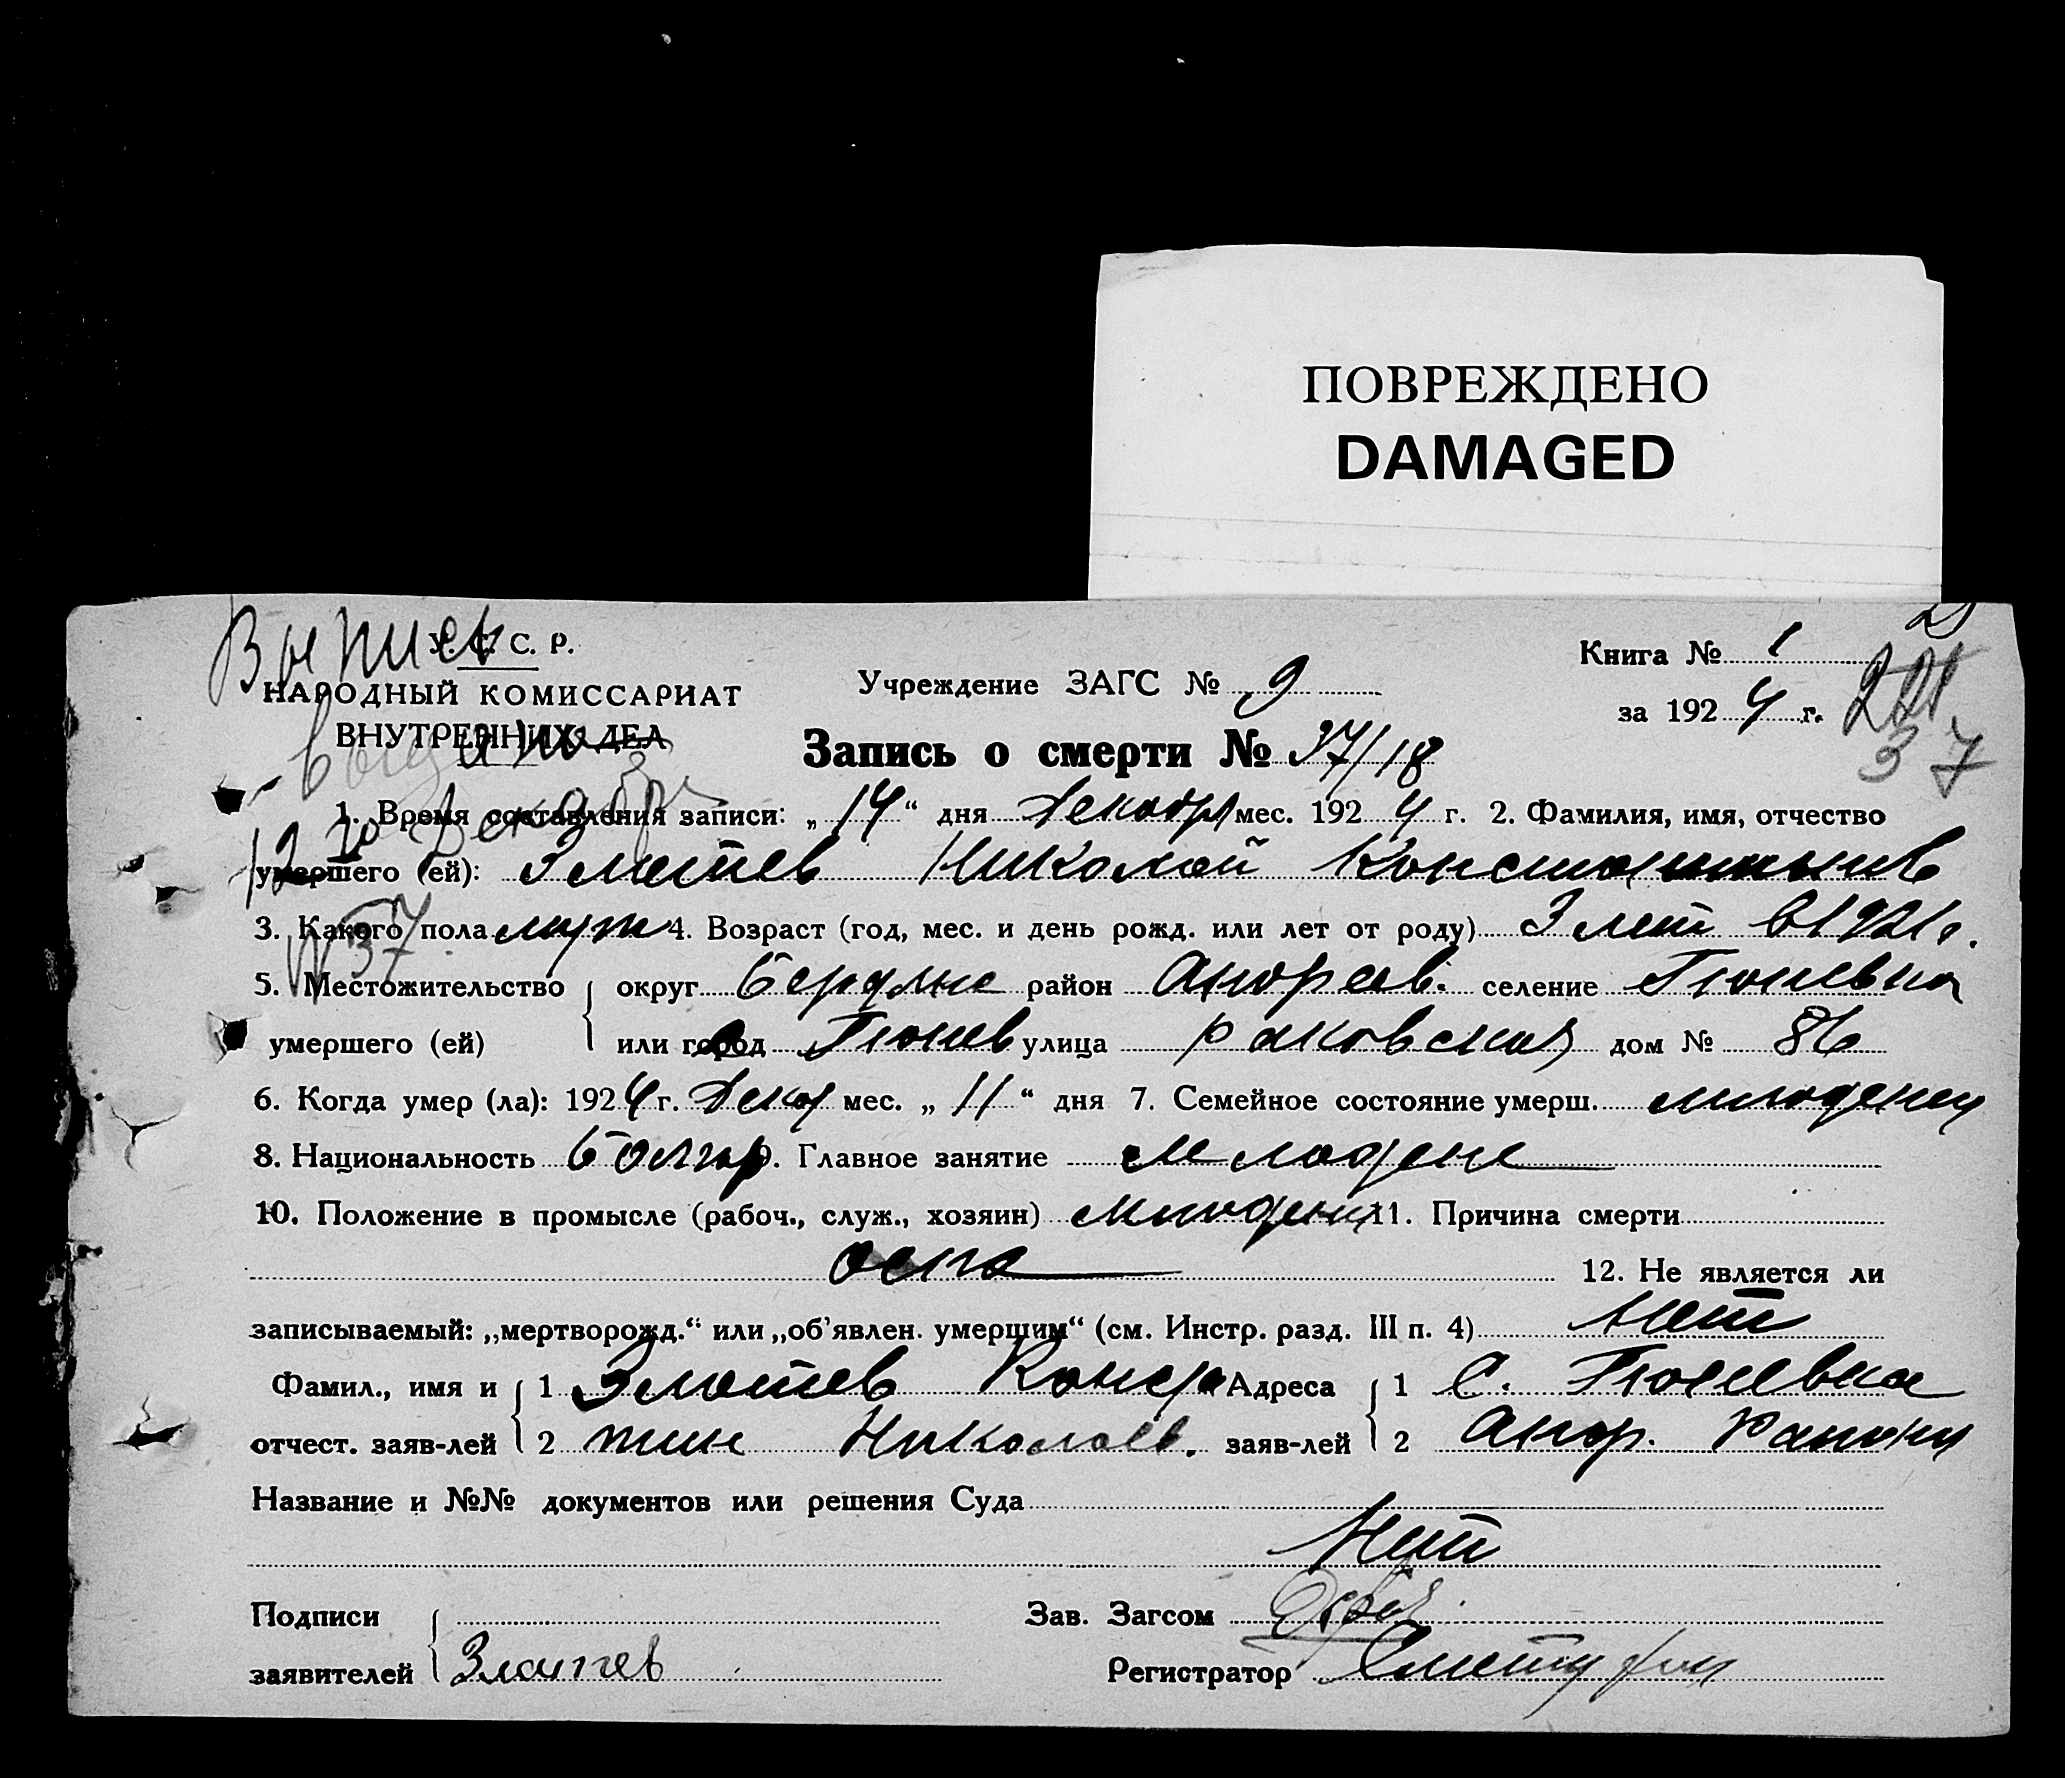 ПОВРЕЖДЕНО
DAMAGED
Выпись
У. С. С. Р.
НАРОДНЫЙ КОМИССАРИАТ
ВНУТРЕННИХ ДЕЛ
Учреждение ЗАГС № 9
Книга № 1
за 1924 г.
37
Запись о смерти № 37/18
выдано
12 го Декабря
№ 37
1. Время составления записи: „14“ дня Декабр мес. 1924 г. 2. Фамилия, имя, отчество
умершего (ей): Златев Николай Константинов
3. Какого пола муж 4. Возраст (год, мес. и день рожд. или лет от роду) 3 лет в 1921 г.
5. Местожительство округ Бердянс район Андреев. селение Гюневка
умершего (ей) или город Гюнев улица Раковская дом № 86
6. Когда умер (ла): 1924 г. Декаб мес. „11“ дня 7. Семейное состояние умерш. младенец
8. Национальность болгар 9. Главное занятие младенец
10. Положение в промысле (рабоч., служ., хозяин) младенец 11. Причина смерти
оспа 12. Не является ли
записываемый: „мертворожд.“ или „об'явлен. умершим“ (см. Инстр. разд. III п. 4) Нет
Фамил., имя и 1 Златев Конста Адреса 1 С. Гюневка
отчест. заяв-лей 2 тин Николаев. заяв-лей 2 Андр. Района
Название и №№ документов или решения Суда
Нет
Подписи Зав. Загсом
заявителей Златев Регистратор